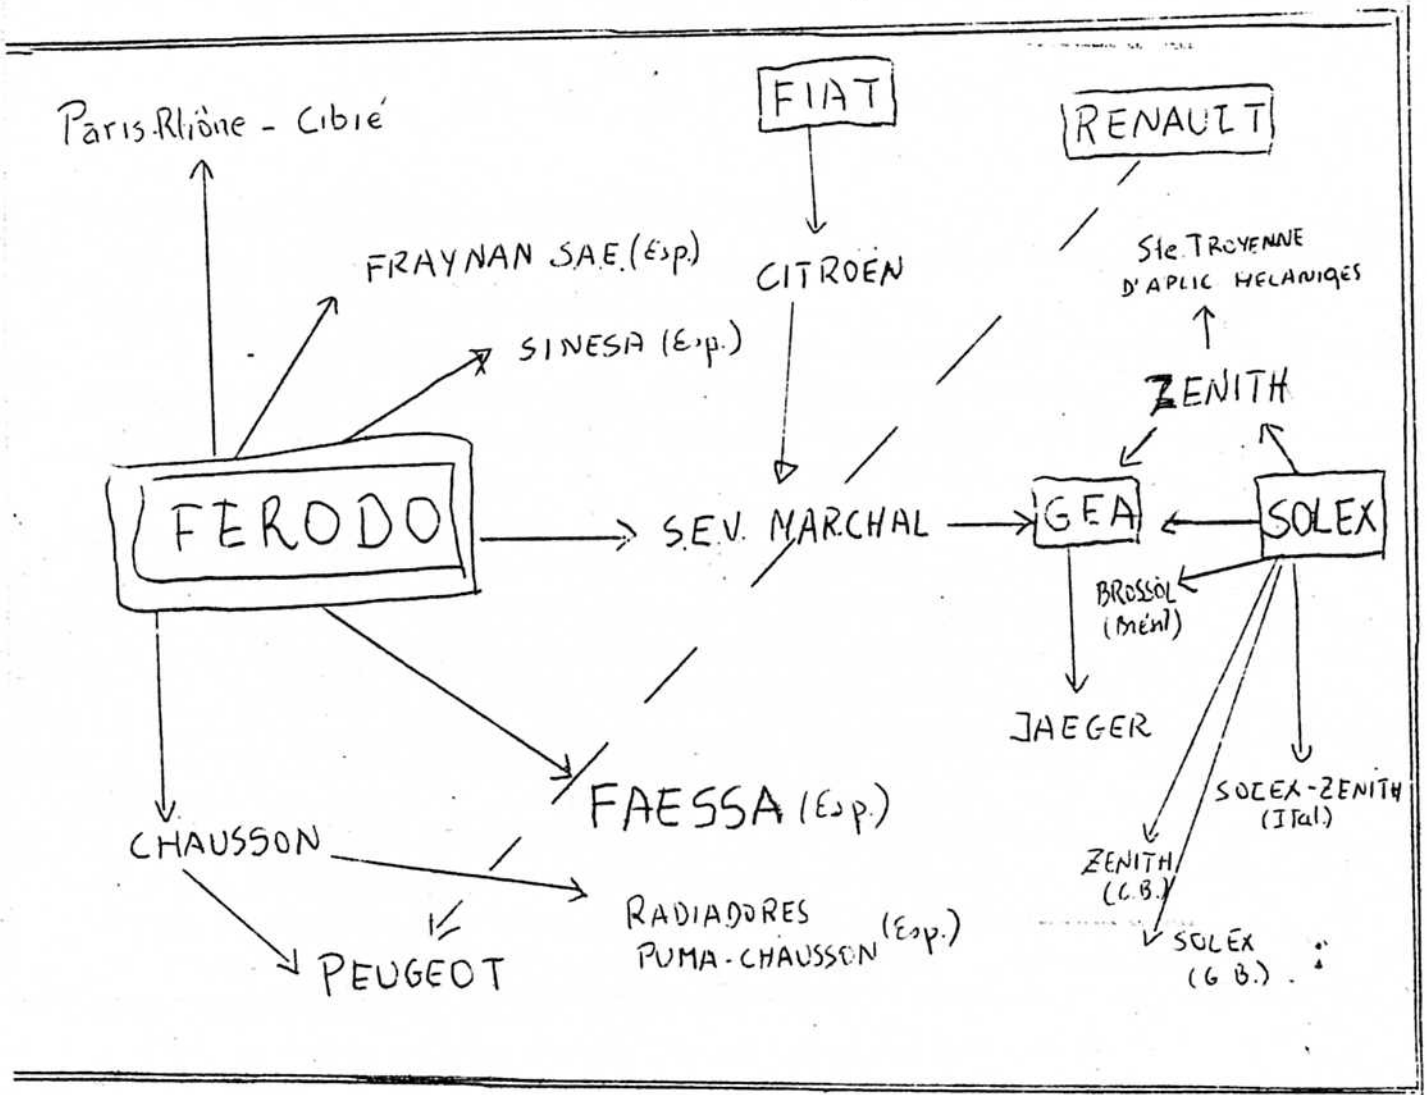 FIAT
RENAULT
Paris-Rhône - Cibié
FRAYNAN S.A.E. (Esp.)
CITROËN
Ste. TROYENNE
D'APLIC MECANIQES
SINESA (Esp.)
ZENITH
FERODO
S.E.V. MARCHAL
GEA
SOLEX
BROSSOL
JAEGER
FAESSA (Esp.)
SOLEX-ZENITH
(Ital.)
CHAUSSON
ZENITH
(G.B.)
RADIADORES
PUMA-CHAUSSON (Esp.)
SOLEX
(G B.).
PEUGEOT